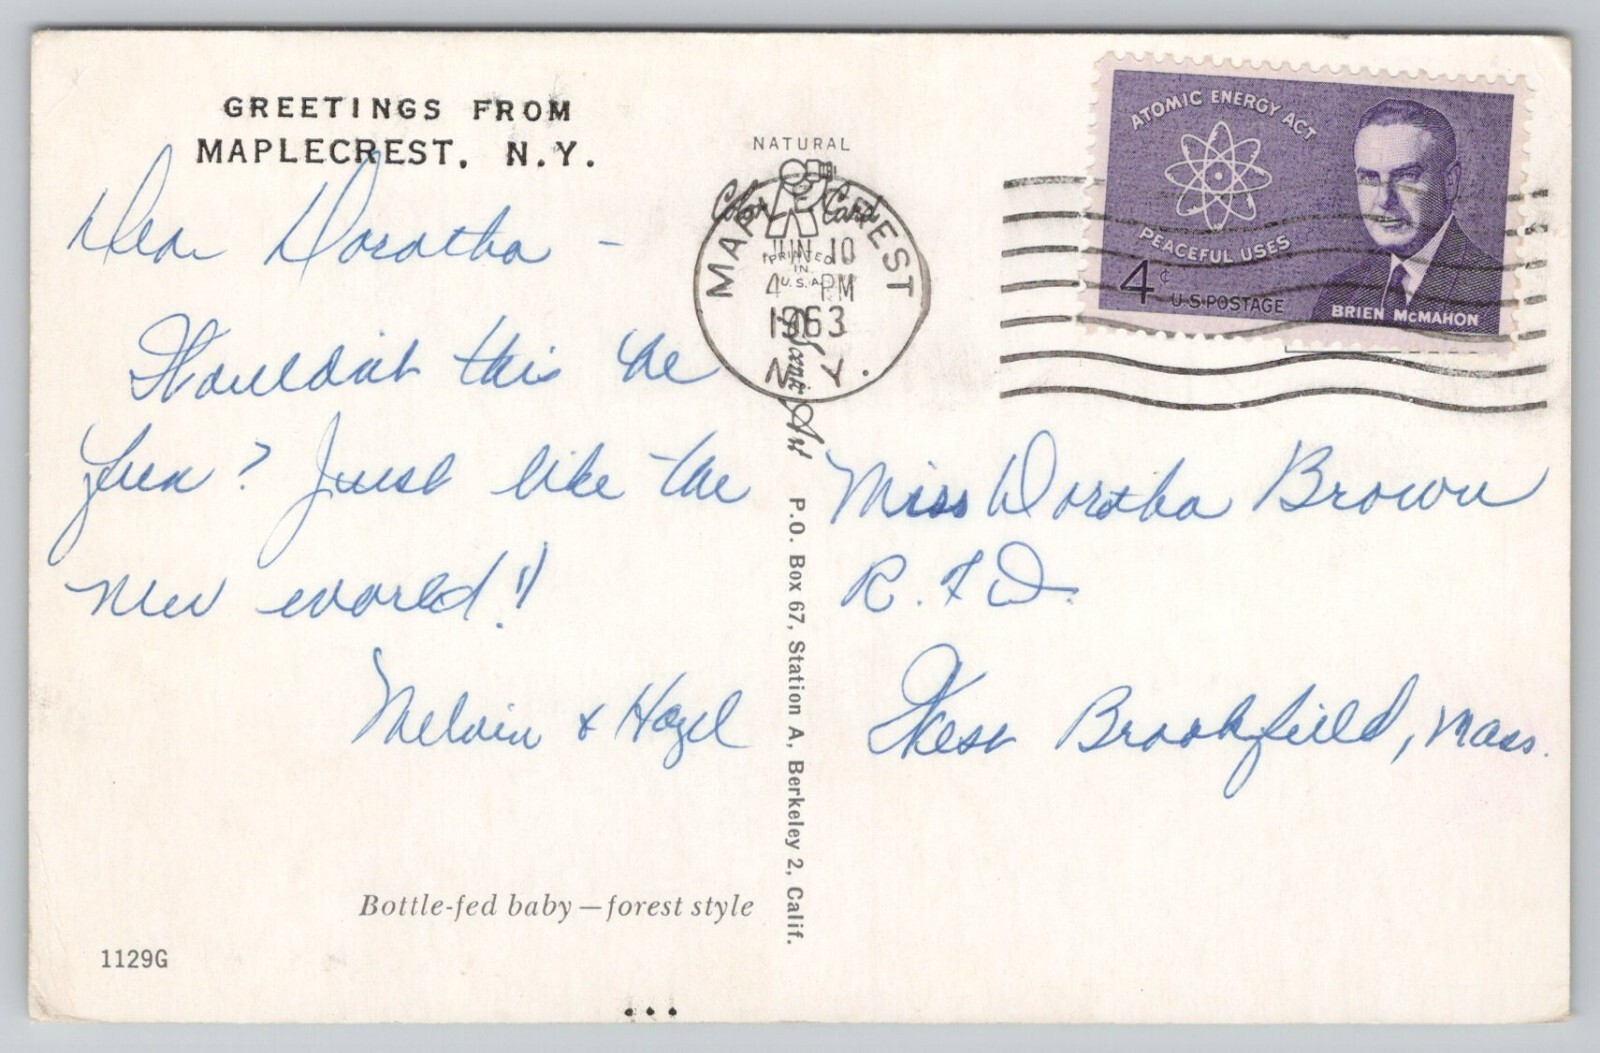 GREETINGS FROM
MAPLECREST, N.Y.
Dear Dorotha -
Wouldn't this be
fun? Just like the
new world!!
Melvin & Hazel
Bottle-fed baby—forest style
1129G
NATURAL
Color Card
PRINTED
IN
U.S.A.
MAPLECREST
JUN 10
4 PM
1963
N.Y.
P.O. Box 67, Station A, Berkeley 2, Calif.
ATOMIC ENERGY ACT
PEACEFUL USES
4¢ U.S. POSTAGE
BRIEN McMAHON
Miss Dorotha Brown
R.F.D.
West Brookfield, Mass.